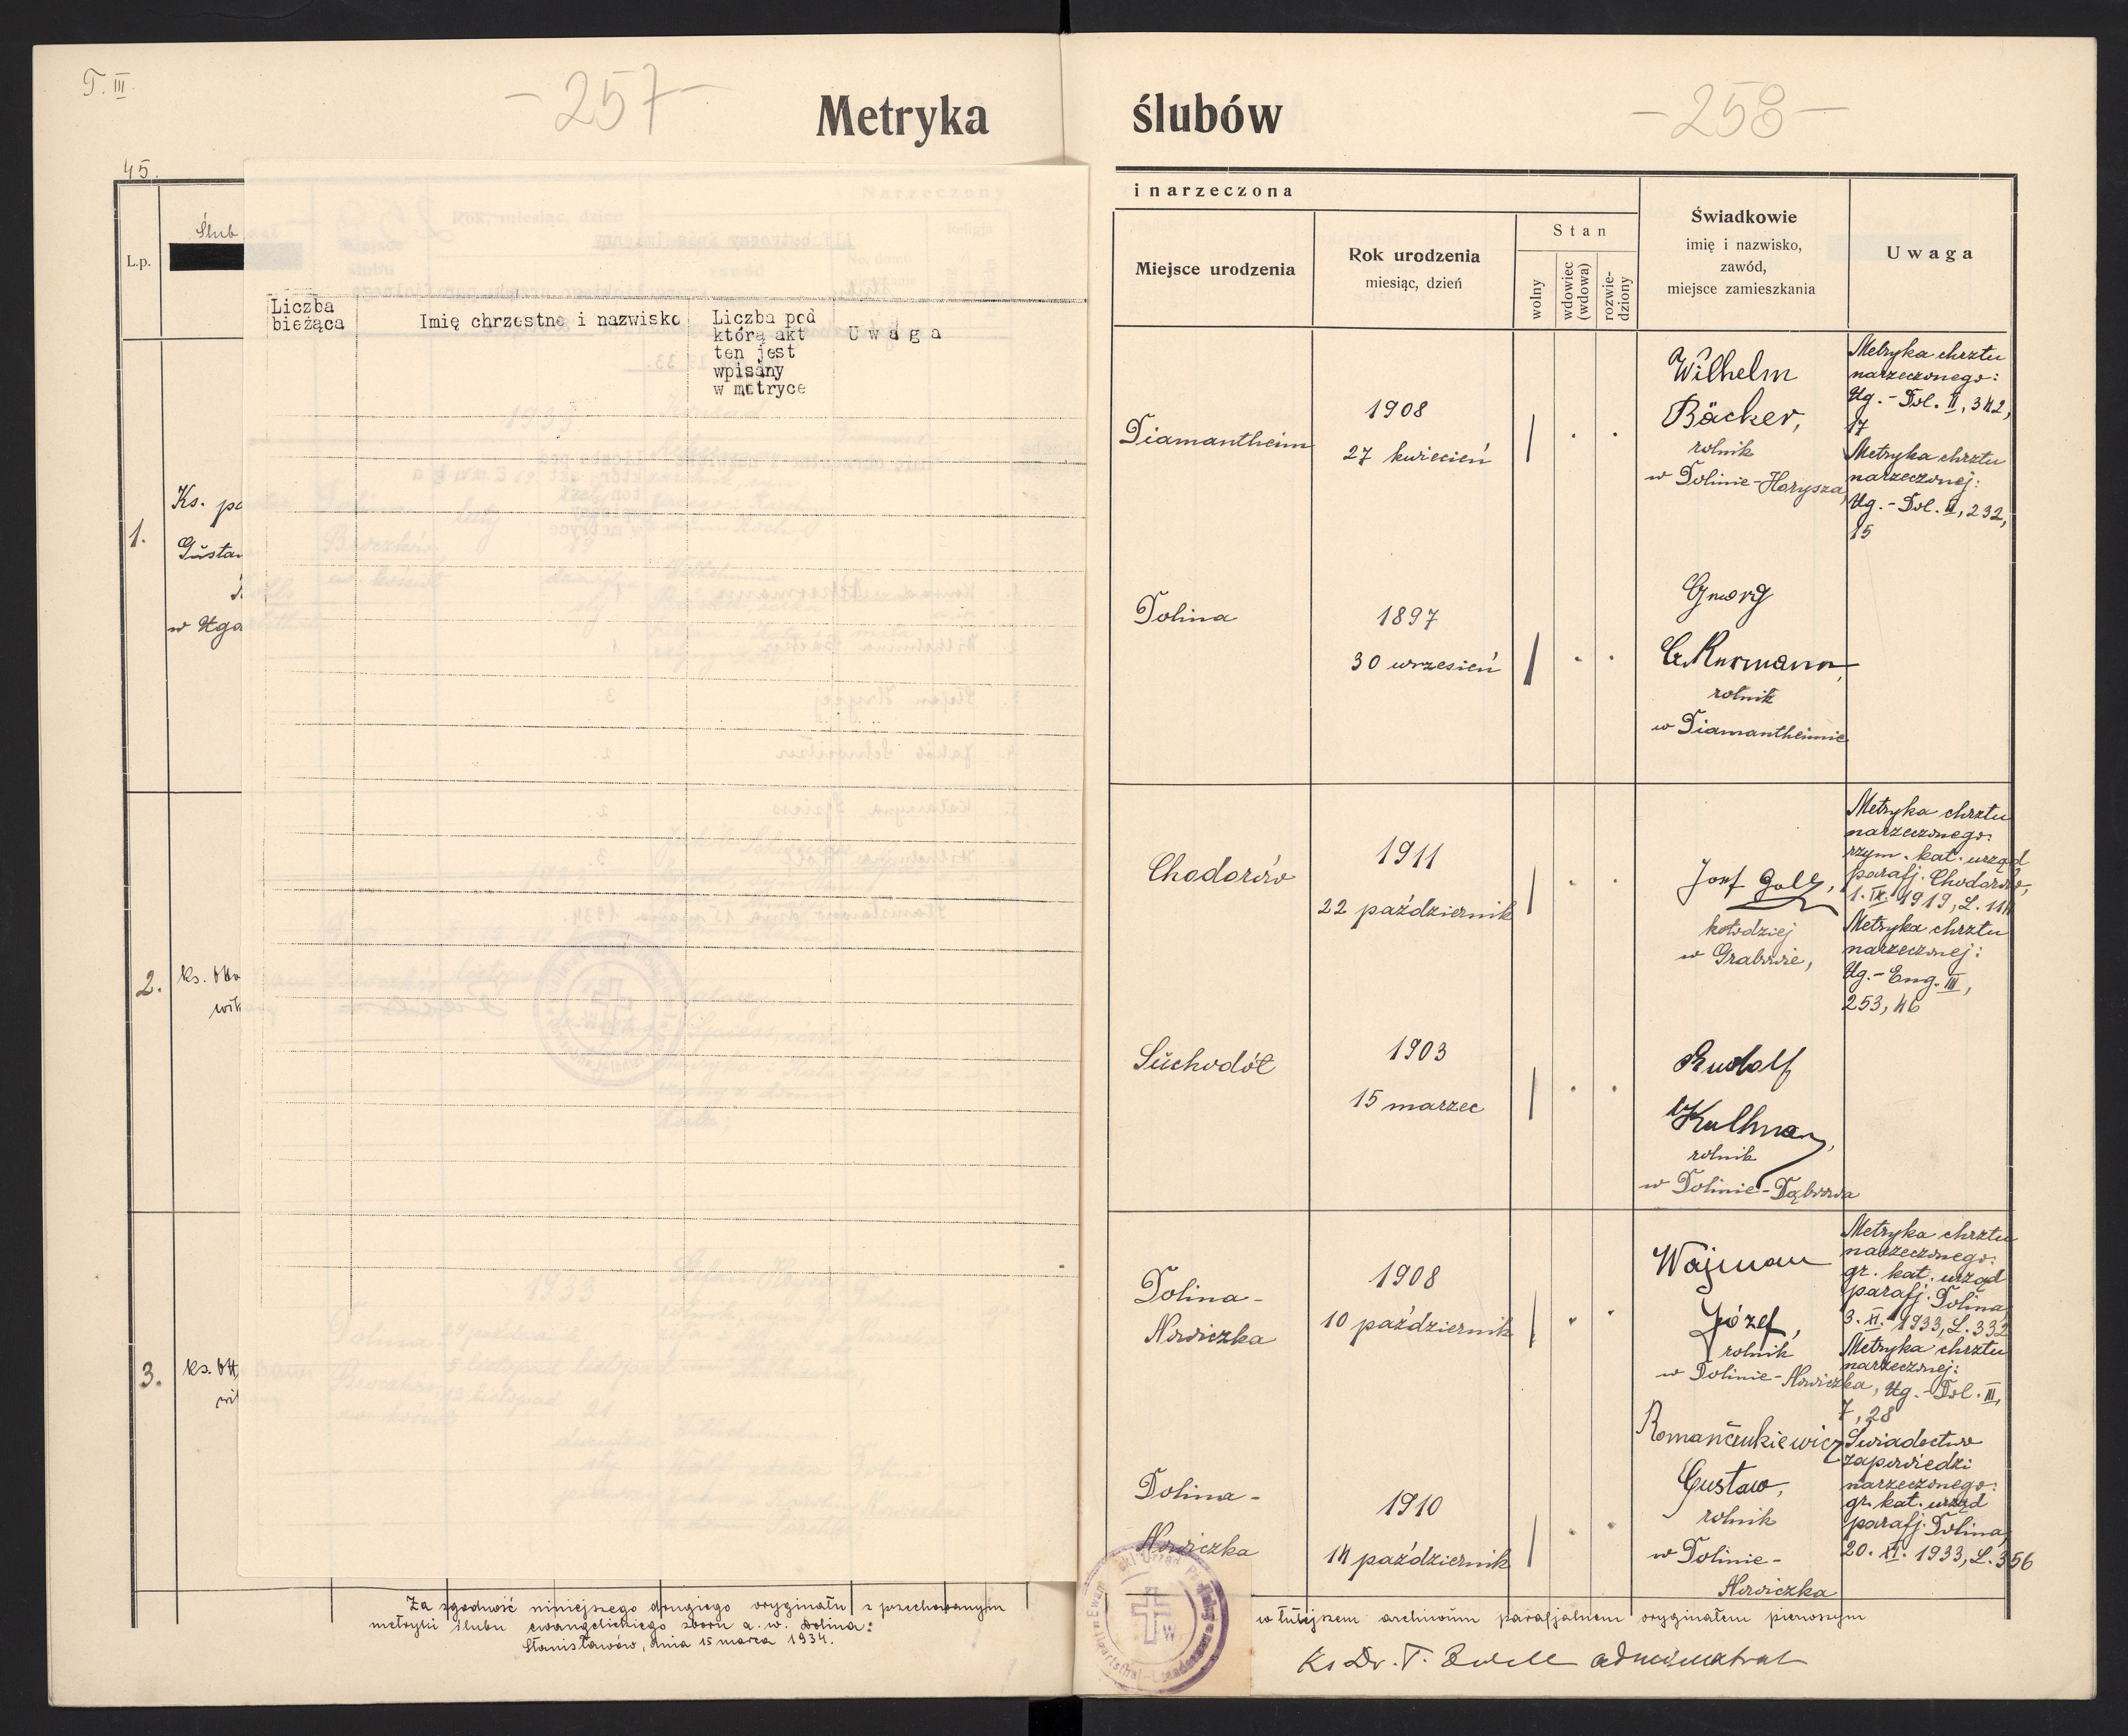 T. III.
- 257 -
Metryka
45.
L.p.
Ślub
Liczba
bieżąca
Imię chrzestne i nazwisko
Liczba pod
którą akt
ten jest
wpisany
w metryce
U w a g a
1.
Ks. pa
Gustaw
w Uga
2.
ks. Otto
wik
3.
ks. Ott
wi
Za zgodność niniejszego drugiego oryginału z przechowanym
metryki ślubu ewangelickiego zboru a. w. Dolina:
Stanisławów, dnia 15 marca 1934.
ślubów
- 258 -
i narzeczona
Miejsce urodzenia
Rok urodzenia
miesiąc, dzień
Stan
wolny
wdowiec
(wdowa)
rozwie-
dziony
Świadkowie
imię i nazwisko,
zawód,
miejsce zamieszkania
Uwaga
Diamantheim
1908
27 kwiecień
Wilhelm
Bäcker,
rolnik
w Dolinie-Horysza,
Metryka chrztu
narzeczonego:
Ug.-Dol. II, 342,
17
Metryka chrztu
narzeczonej:
Ug.-Dol. II, 232,
15
Dolina
1897
30 wrzesień
Georg
rolnik
w Diamantheimie
Chodorów
1911
22 październik
Josef Goll,
kołodziej
w Grabowie,
Metryka chrztu
narzeczonego:
rzym. kat. urząd
parafj. Chodorów,
1. IX. 1919, L. 114
Metryka chrztu
narzeczonej:
Ug.-Eng. III,
253, 46
Suchodół
1903
15 marzec
Rudolf
Kullman,
rolnik
w Dolinie-Dąbrowa
Dolina-
Nowiczka
1908
10 październik
Wajman
Józef,
rolnik
w Dolinie-Nowiczka,
Metryka chrztu
narzeczonego:
gr. kat. urząd
parafj. Dolina,
3. XI. 1933, L. 332
Metryka chrztu
narzeczonej:
Ug.-Dol. III,
7, 28
Dolina-
Nowiczka
1910
14 październik
Romańczukiewicz
Gustaw,
rolnik
w Dolinie-
Nowiczka
Świadectwo
zapowiedzi
narzeczonego:
gr. kat. urząd
parafj. Dolina,
20. XI. 1933, L. 356
w tutejszem archiwum parafjalnem oryginałem pierwszym
Ks Dr. administrator